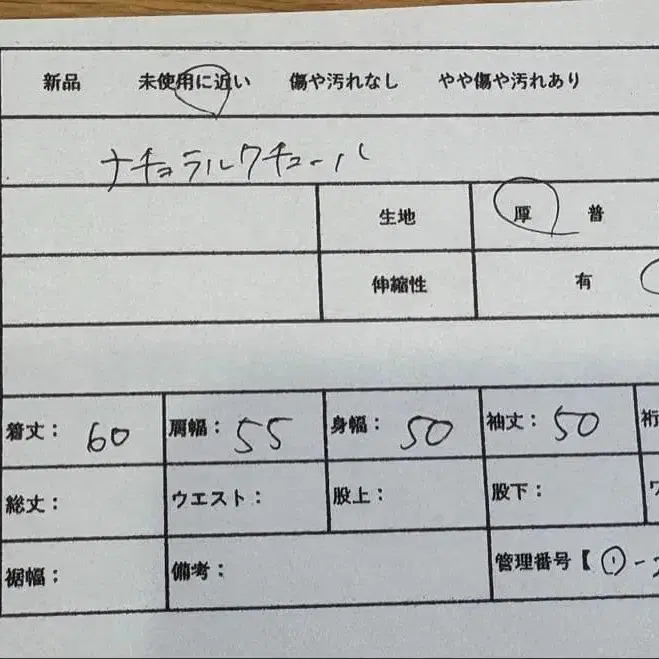 新品 未使用に近い 傷や汚れなし やや傷や汚れあり
ナチョラルクチュール
生地 厚 普
伸縮性 有
着丈： 60 肩幅： 55 身幅： 50 袖丈： 50 裄
総丈： ウエスト： 股上： 股下： ワ
裾幅： 備考： 管理番号【 ①-